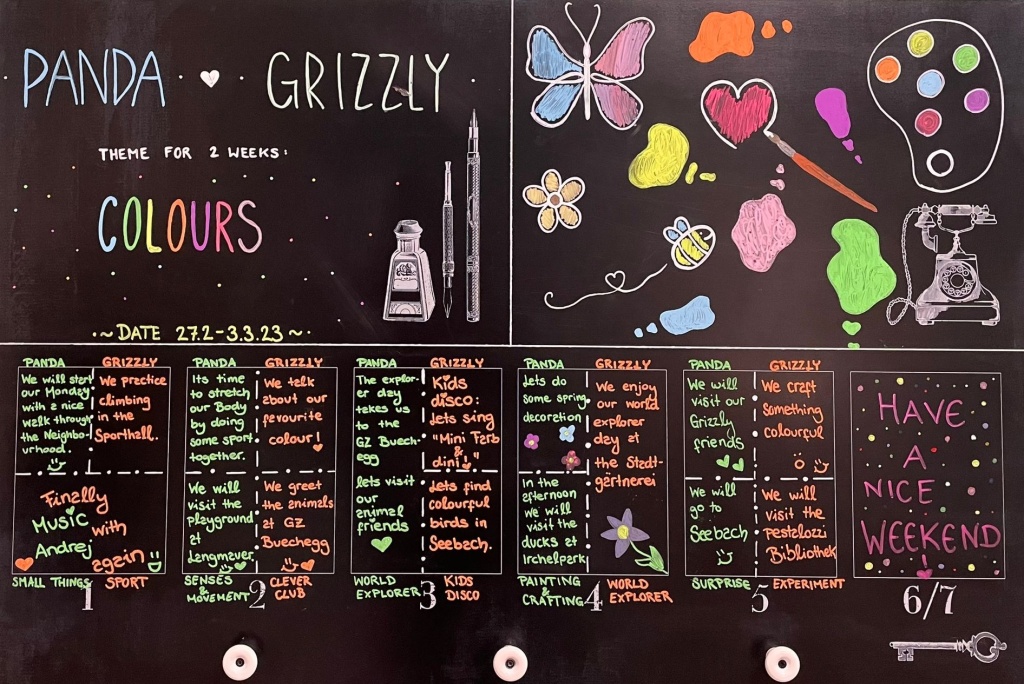 PANDA GRIZZLY
THEME FOR 2 WEEKS:
COLOURS
~DATE 27.2-3.3.23~
PANDA
We will start
our Monday
with a nice
walk through
the Neighbo-
urhood.
GRIZZLY
We practice
climbing
in the
Sporthall.
Finally
Music with
Andrej
again
SMALL THINGS
SPORT
1
PANDA
Its time
to stretch
our Body
by doing
some sport
together.
GRIZZLY
We talk
about our
favourite
colour!
We will
visit the
playground
at
We greet
the animals
at GZ
Buechegg
SENSES
&
MOVEMENT
CLEVER
CLUB
2
PANDA
The explor-
er day
takes us
to the
GZ Buech-
egg
GRIZZLY
Kids
disco:
lets sing
"Mini Farb
&
dini!"
lets visit
our
animal
friends
Lets find
colourful
birds in
Seebach.
WORLD
EXPLORER
KIDS
DISCO
3
PANDA
Lets do
some spring
decoration
GRIZZLY
We enjoy
our world
explorer
day at
the Stadt-
gärtnerei
In the
afternoon
we will
visit the
ducks at
Irchelpark
PAINTING
&
CRAFTING
WORLD
EXPLORER
4
PANDA
We will
visit our
Grizzly
friends
GRIZZLY
We craft
something
colourful
We will
go to
Seebach
We will
visit the
Pestalozzi
Bibliothek
SURPRISE
EXPERIMENT
5
HAVE
A
NICE
WEEKEND
!
6/7